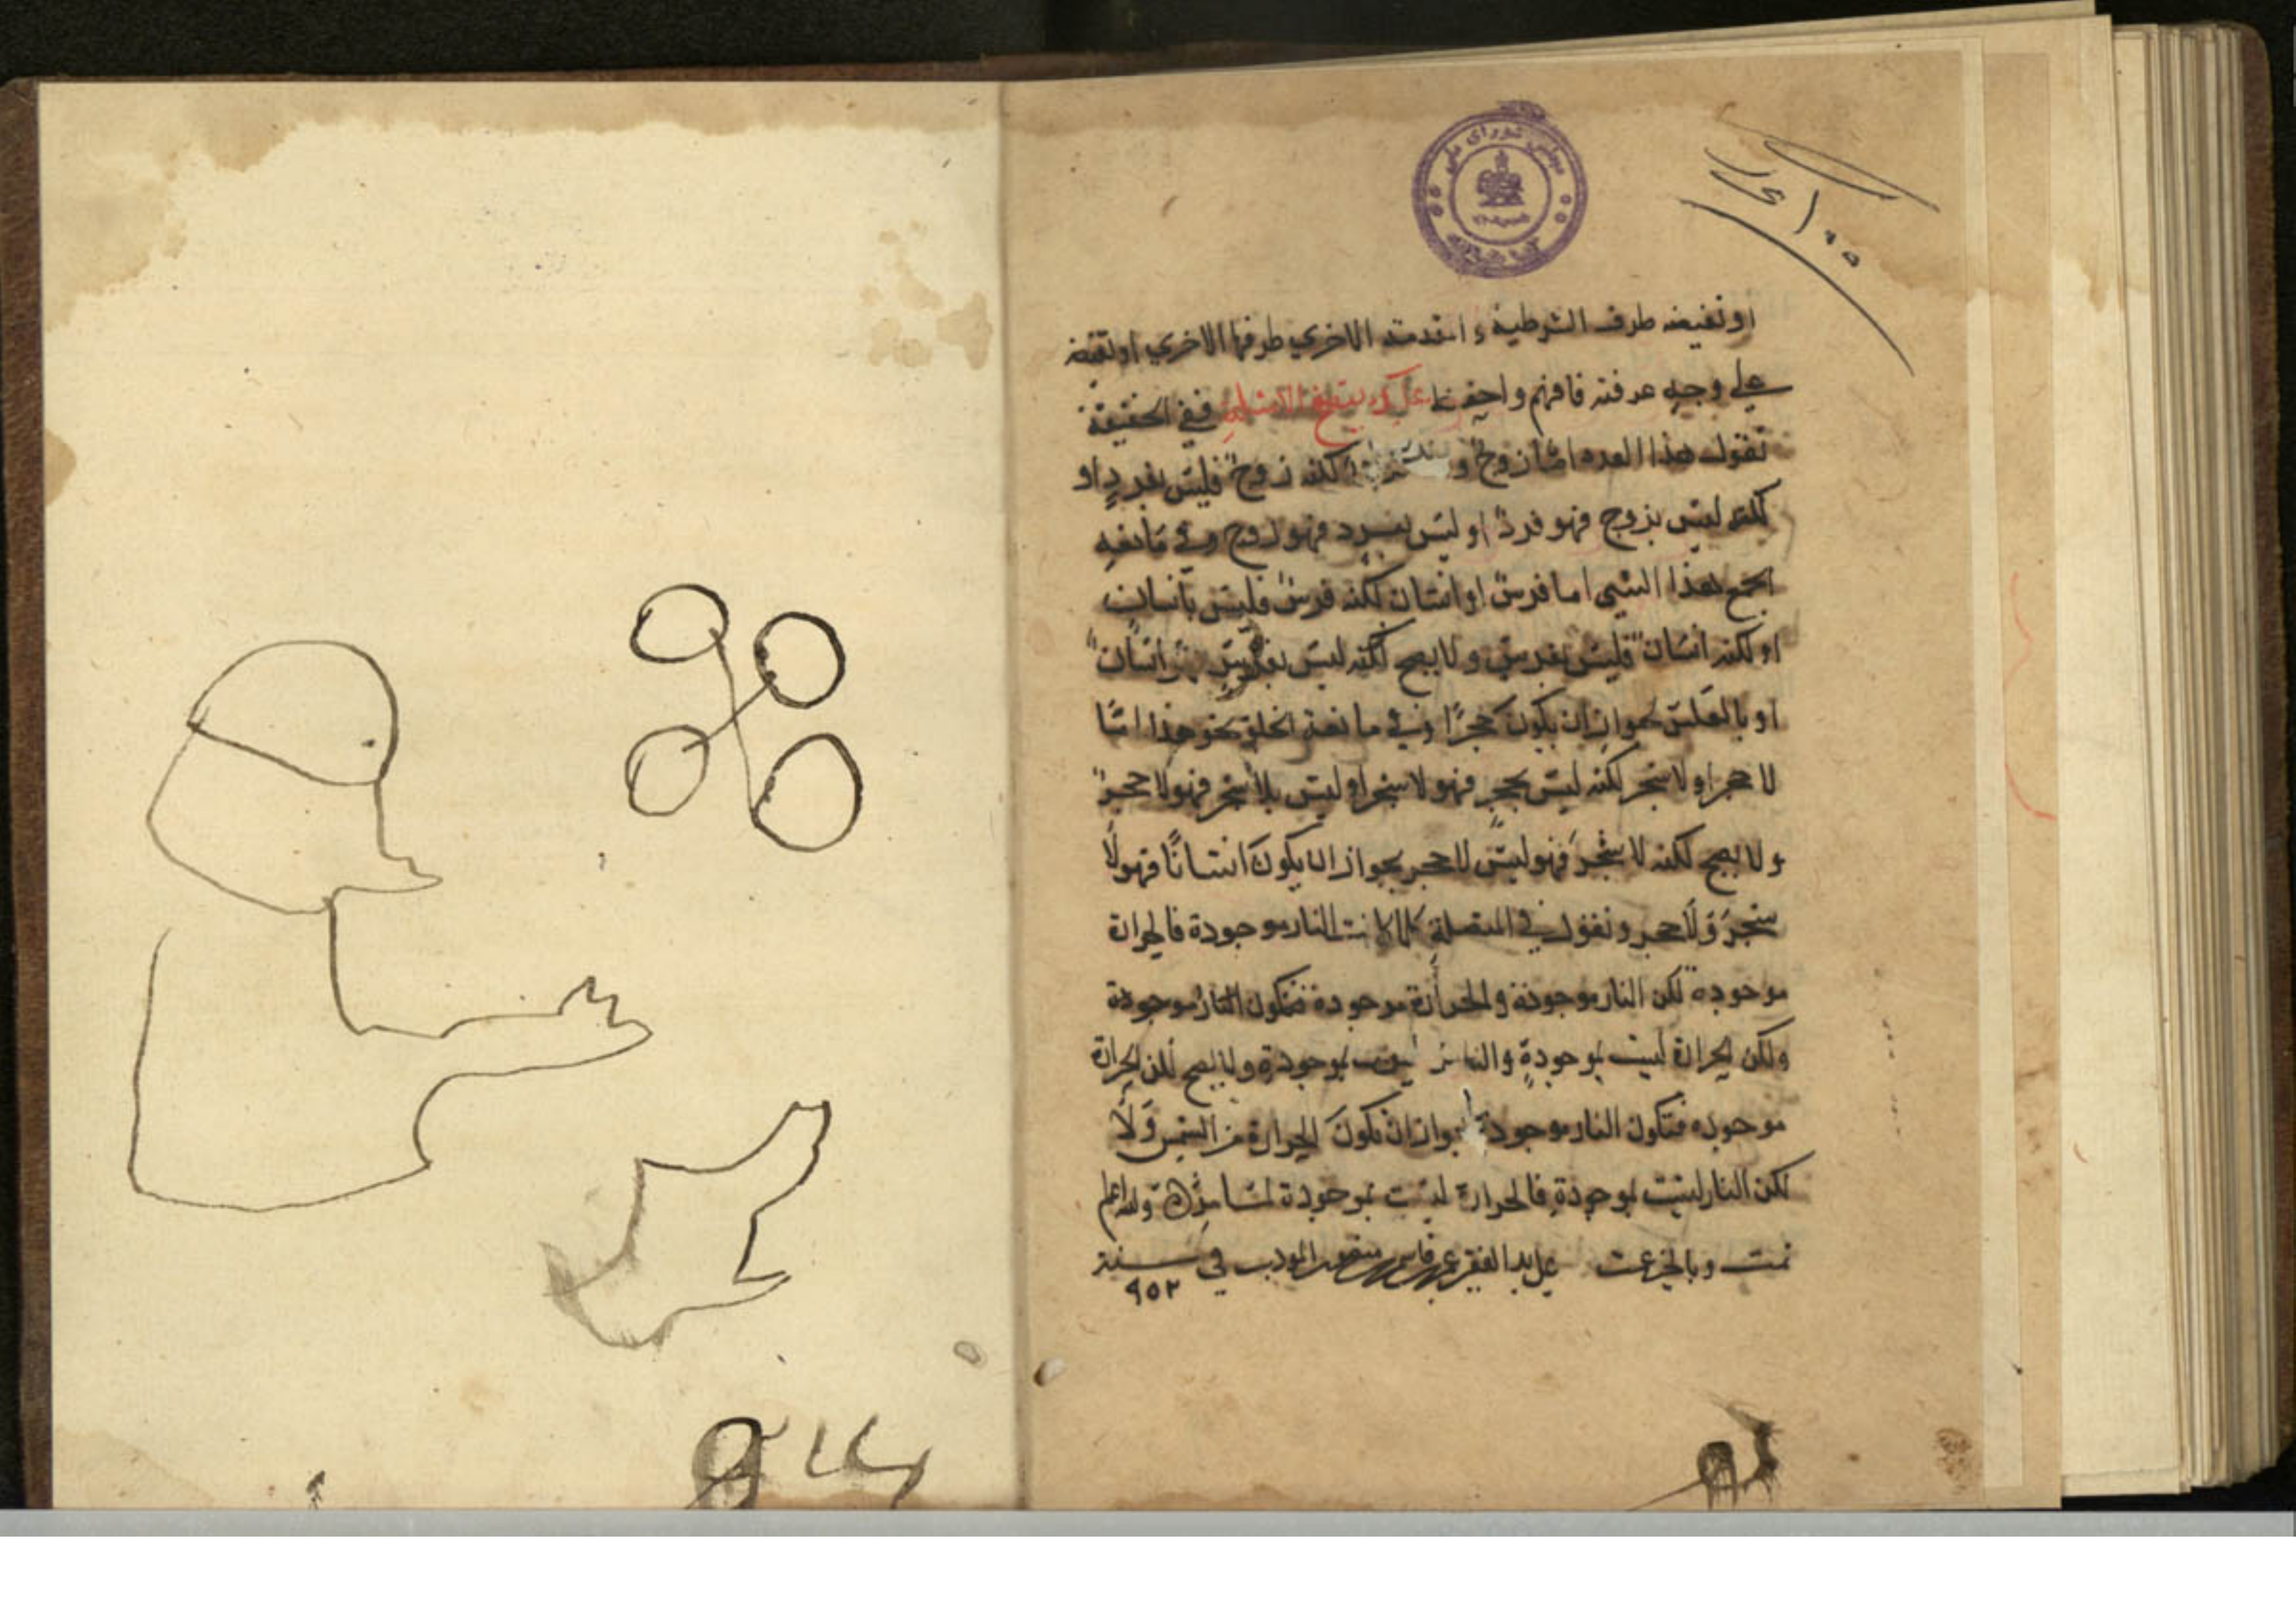 مجلس شورای ملی
او نقيضه طرف الشرطية و المقدمة الاخري طرفها الاخري او نقيضه
علي وجه عرفته فافهم واحفظ عليك بتتبع الامثلة ففي الحقيقة
تقول هذا العدد اما زوج او فرد لكنه زوج فليس بفرد او
لكنه ليس بزوج فهو فرد او ليس بفرد فهو زوج وفي مانعة
الجمع هذا الشي اما فرس او انسان لكنه فرس فليس بانسان
او لكنه انسان فليس بفرس ولا يصح لكنه ليس بفرس انسان
او بالعكس لجواز ان يكون حجرًا وفي مانعة الخلو نحو هذا امّا
لا حجر او لا شجر لكنه ليس بحجر فهو لا شجر او ليس بلا شجر فهو لا حجر
ولا يصح لكنه لا شجر فهو ليس لا حجر لجواز ان يكون انسانًا فهو لا
شجر ولا حجر ونقول في المتصلة كلما كانت النار موجودة فالحرارة
موجوده لكن النار موجودة والحرارة موجودة فتكون النار موجودة
ولكن الحرارة ليست بموجودة والنار ليست بموجودة ولا يصح لكن الحرارة
موجوده فتكون النار موجودة لجواز ان تكون الحرارة من الشمس وَلا
لكن النار ليست بموجودة فالحرارة ليست بموجودة لما والله اعلم
تمت وبالخير عمت على يد الفقير منصور المودب في سنة
٩٥٢